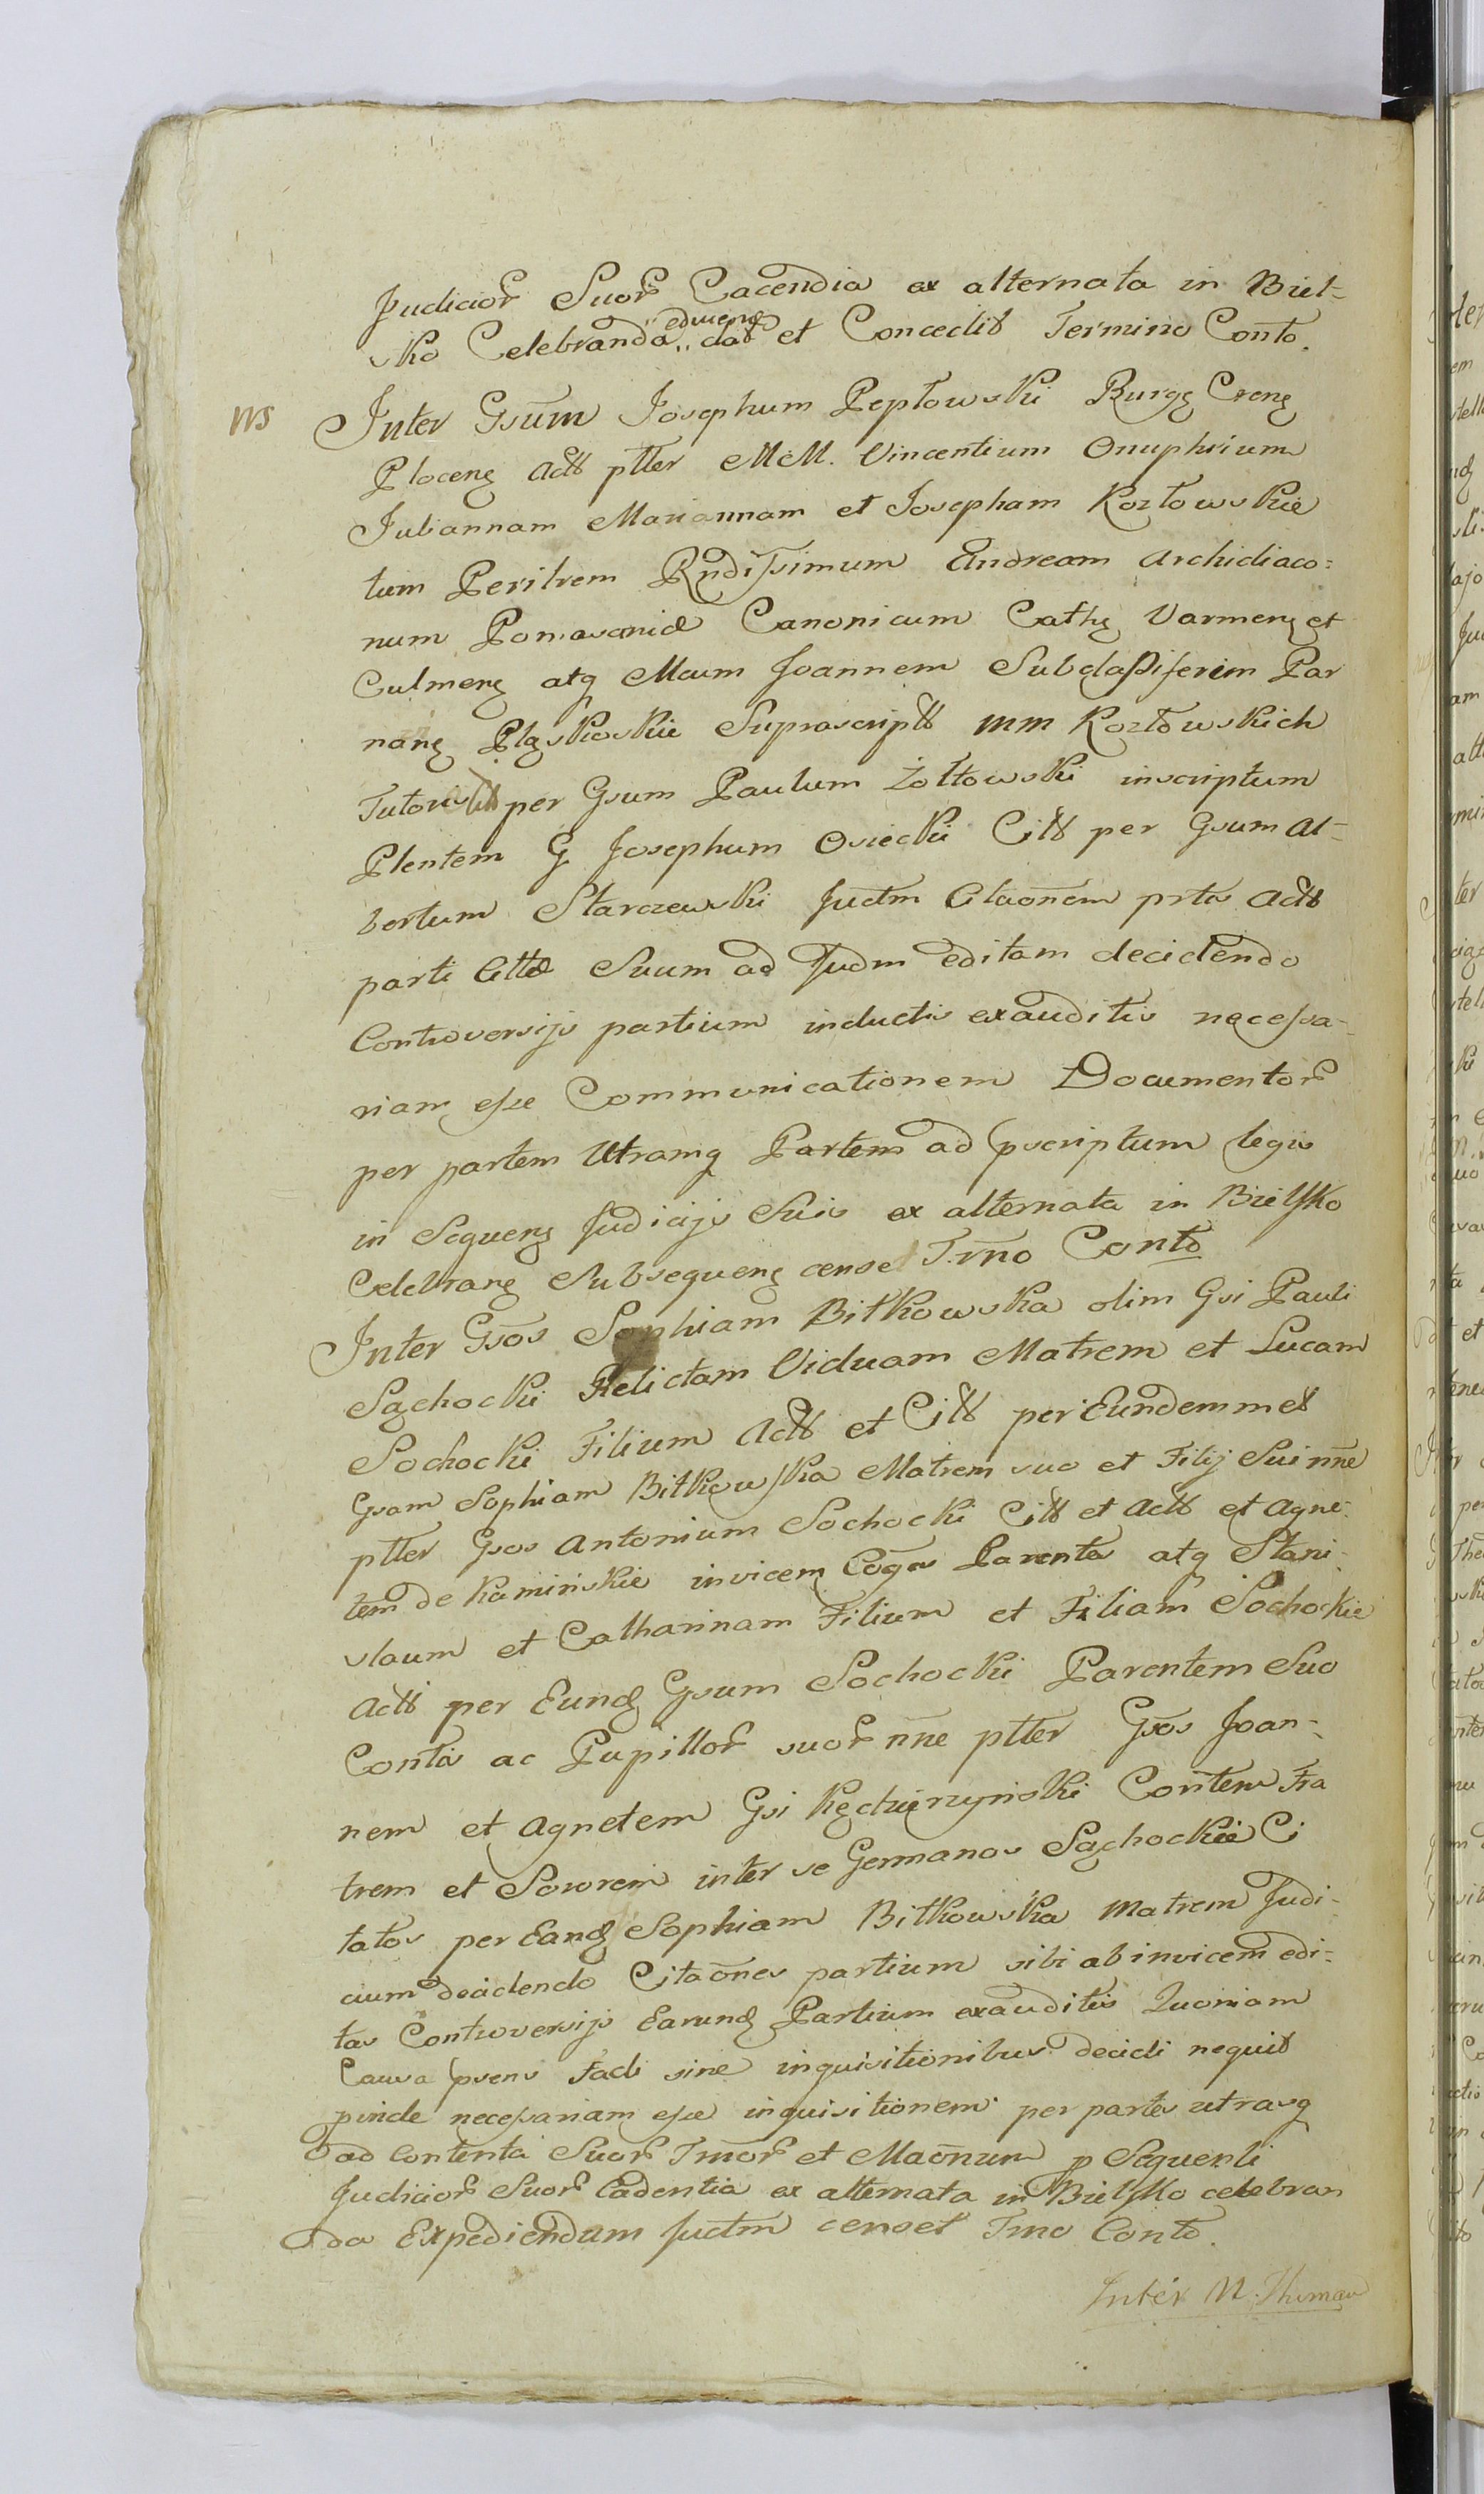 Judicior Suor Cacendia ex alternata in Biel-
sko Celebranda „edmeng„ dat et Concedit Termino Conto.
NS Inter Gsūm Josephum Peptowski Burgg Creng
Ploceng Actt ptter MM. Vincentium Onuphrium
Juliannam Mariannam et Josepham Kozłowskie
tum Peritrem Rndissimum Andream Archidiaco=
num Pomasaniæ Canonicum Cathg Varmeng et
Culmeng atq Mcum Joannem Subdapiferim Par
nang Pląskoskie Suprascriptt mm Kozłowskich
Tutores per Gsum Paulum Żołtowski inscriptum
Plentem G Josephum Osiecki Citt per Gsum Al-
bertum Starczewski Juctm Citaōnem prta Actt
parti Cittæ Suum ad Judm editam decidendo
Controversijs partium inductis exauditis necessa-
riam esse Communicationem Documentor
per partem Utramq Partem ad pscriptum legis
in Sequeng Judicijs Suis ex alternata in Bielsko
Celebrang Subsequeng censet Tr̄no Conto
Inter Gsōs Sophiam Bitkowska olim Gsi Pauli
Sąchocki Relictam Viduam Matrem et Lucam
Sochocki Filium Actt et Citt per Eundemmet
Gsam Sophiam Bitkowska Matrem suo et Filij Sui nn̄e
ptter Gsos Antonium Sochocki Citt et Actt et Agne-
tem de Kamińskie invicem Cōges Parentes atq Stani-
slaum et Catharinam Filium et Filiam Sochockie
Actt per Eundg Gsum Sochocki Parentem Suo
Contis ac Pupillor suor nn̄e ptter Gsōs Joan-
nem et Agnetem Gsi Kędzierzynski Contem Fra
trem et Sororem inter se Germanos Sąchockie Ci
tatos per Eandg Sophiam Bitkowska Matrem Judi-
cium decidendo Citaōnes partium sibi ab invicem edi-
tas Controversijs Earundg Partium exauditis Quoniam
Causa psens Facti sine inquisitionibus decidi nequit
pinde necessariam esse inquisitionem per partes utrasq
ad Contenta Suor Tmor et Maōnum p Sequenti
Judicior Suor Cadentia ex alternata in Bielsko celebran
da Expediendam Juctm censet Tmo Conto.
Inter M. Thomam